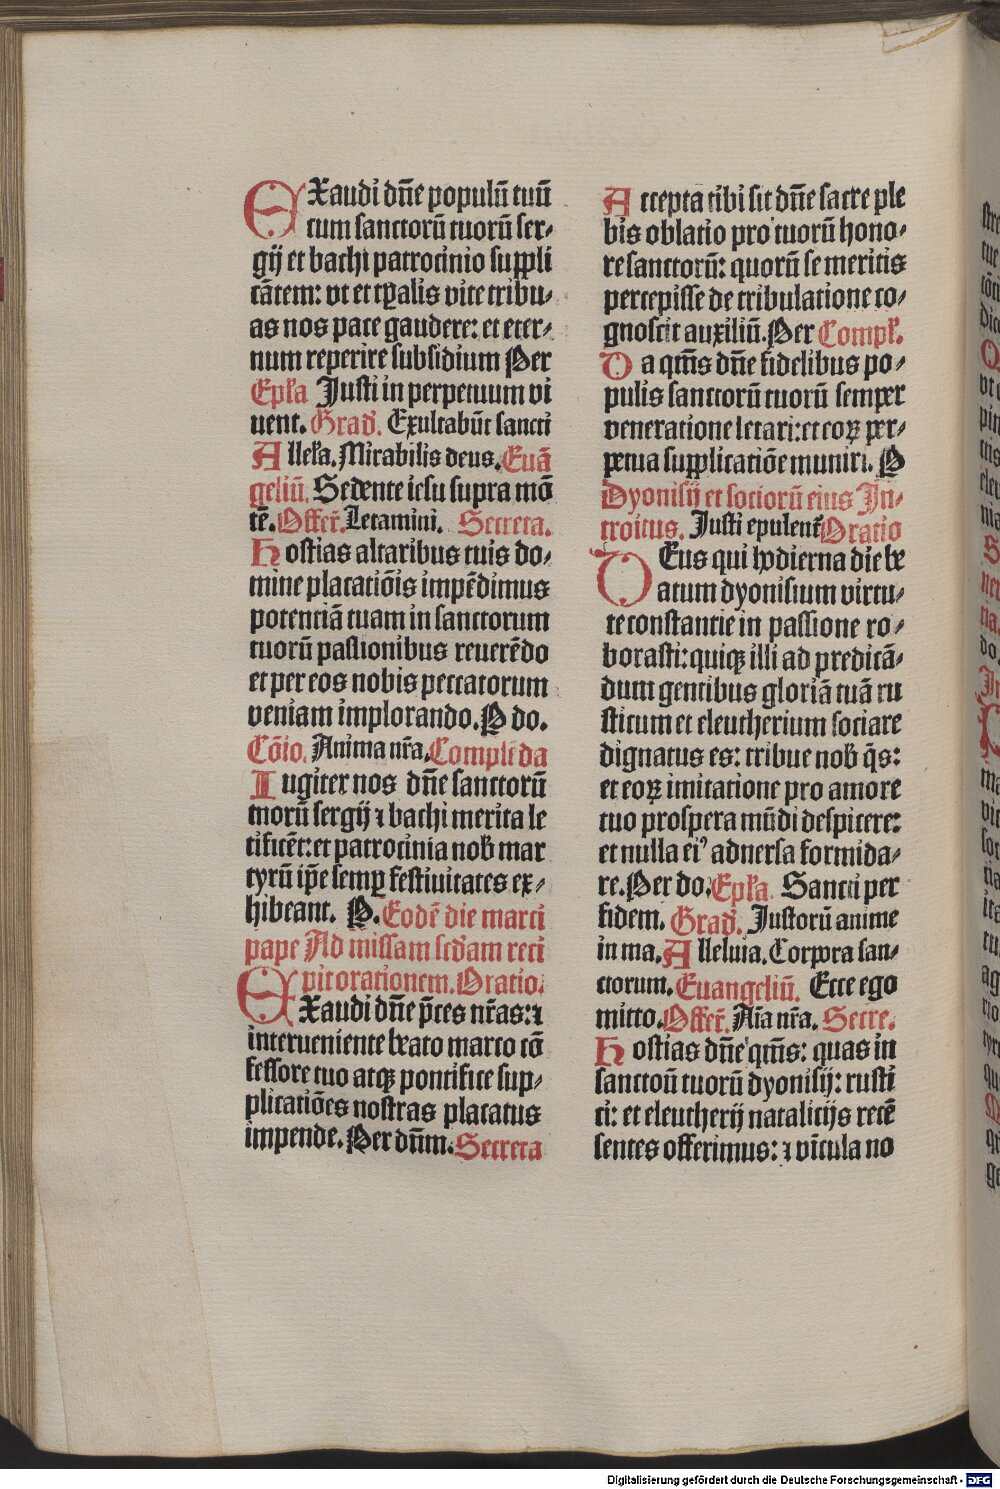 EXaudi dn̄e populū tuū
cum sanctorū tuorū ser-
gij et bachi patrocinio suppli
cātem: vt et tp̄alis vite tribu-
as nos pace gaudere: et eter-
num reperire subsidium Per
Epl̄a Justi in perpetuum vi
uent. Grad̄. Exultabūt sancti
Allel̄a. Mirabilis deus. Euā
geliū. Sedente iesu supra mō
tē. Offer̄. Letamini. Secreta.
Hostias altaribus tuis do-
mine placatiōis impēdimus
potentiā tuam in sanctorum
tuorū passionibus reuerēdo
et per eos nobis peccatorum
veniam implorando. P do.
Cōio. Anima nr̄a. Complēda
Iugiter nos dn̄e sanctorū
tuorū sergij ⁊ bachi merita le
tificēt: et patrocinia nob̄ mar
tyrū ip̄e semꝑ festiuitates ex-
hibeant. P. Eodē die marci
pape Ad missam scd̄am reci
pit orationem. Oratio.
EXaudi dn̄e p̄ces nr̄as: ⁊
interueniente beato marco cō
fessore tuo atqꝫ pontifice sup-
plicatiōes nostras placatus
impende. Per dn̄m. Secreta
Accepta tibi sit dn̄e sacre ple
bis oblatio pro tuorū hono-
re sanctorū: quorū se meritis
percepisse de tribulatione co-
gnoscit auxiliū. Per Compl̄.
Da qm̄s dn̄e fidelibus po-
pulis sanctorū tuorū semper
veneratione letari: et eoꝝ per-
petua supplicatiōe muniri. P
Dyonisij et sociorū eius In-
troitus. Justi epulent᷑ Oratio
DEus qui hodierna die be
atum dyonisium virtu-
te constantie in passione ro-
borasti: quiqꝫ illi ad predicā-
dum gentibus gloriā tuā ru
sticum et eleutherium sociare
dignatus es: tribue nob̄ q̄s:
et eoꝝ imitatione pro amore
tuo prospera mūdi despicere:
et nulla ei⁹ aduersa formida-
re. Per do. Epl̄a. Sancti per
fidem. Grad̄. Justorū anime
in ma. Alleluia. Corpora san-
ctorum. Euangeliū. Ecce ego
mitto. Offer̄. Aīa nr̄a. Secre.
Hostias dn̄e qm̄s: quas in
sanctoū tuorū dyonisij: rusti
ci: et eleutherij natalicijs recē
sentes offerimus: ⁊ vīcula no
Digitalisierung gefördert durch die Deutsche Forschungsgemeinschaft - DFG